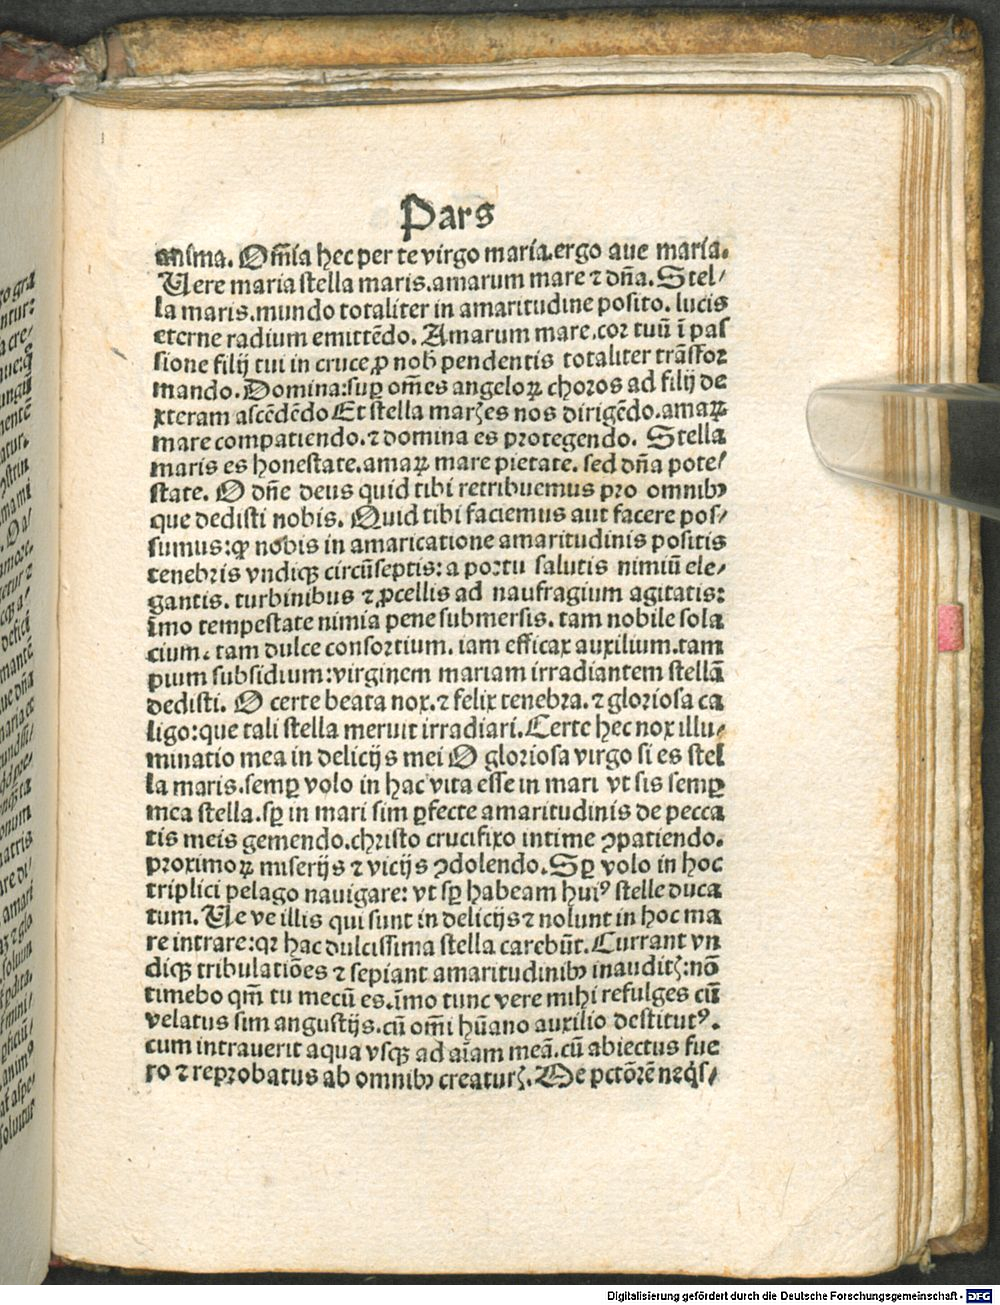 Pars
anima. Om̄ia hec per te virgo maria.ergo aue maria.
Vere maria stella maris.amarum mare ⁊ dn̄a. Stel/
la maris.mundo totaliter in amaritudine posito. lucis
eterne radium emittēdo. Amarum mare.cor tuū ī pas
sione filij tui in cruce ꝓ nob̄ pendentis totaliter trāsfor
mando. Domina:suꝑ om̄es angeloꝝ choros ad filij de
xteram ascēdēdo Et stella marꝭ es nos dirigēdo.amaꝝ
mare compatiendo.⁊ domina es protegendo. Stella
maris es honestate.amaꝝ mare pietate. sed dn̄a pote/
state. O dn̄e deus quid tibi retribuemus pro omnibꝫ
que dedisti nobis. Quid tibi faciemus aut facere pos/
sumus:ꝙ nobis in amaricatione amaritudinis positis
tenebris vndiqꝫ circūseptis: a portu salutis nimiū ele/
gantis. turbinibus ⁊ ꝓcellis ad naufragium agitatis:
īmo tempestate nimia pene submersis. tam nobile sola
cium. tam dulce consortium. iam efficax auxilium.tam
pium subsidium:virginem mariam irradiantem stellā
dedisti. O certe beata nox.⁊ felix tenebra.⁊ gloriosa ca
ligo:que tali stella meruit irradiari.Certe hec nox illu/
minatio mea in delicijs mei O gloriosa virgo si es stel
la maris.semꝑ volo in hac vita esse in mari vt sis semꝑ
mea stella.sꝑ in mari sim ꝑfecte amaritudinis de pecca
tis meis gemendo.christo crucifixo intime ꝯpatiendo.
proximoꝝ miserijs ⁊ vicijs ꝯdolendo.Sꝑ volo in hoc
triplici pelago nauigare: vt sꝑ habeam huiꝰ stelle duca
tum. Ve ve illis qui sunt in delicijs ⁊ nolunt in hoc ma
re intrare:qꝛ hac dulcissima stella carebūt. Currant vn
diqꝫ tribulatiōes ⁊ sepiant amaritudinibꝫ inauditꝭ:nō
timebo qm̄ tu mecū es.īmo tunc vere mihi refulges cū
velatus sim angustijs.cū om̄i hūano auxilio destitutꝰ.
cum intrauerit aqua vsqꝫ ad aīam meā.cū abiectus fue
ro ⁊ reprobatus ab omnibꝫ creaturꝭ. De pctōrē neqͥs/
Digitalisierung gefördert durch die Deutsche Forschungsgemeinschaft - DFG